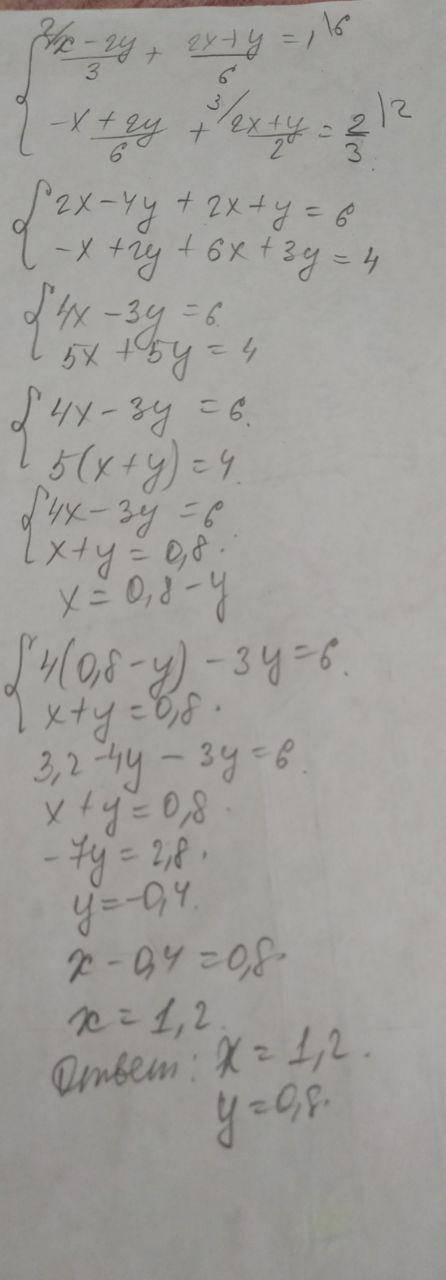 { ²/ (x - 2y)/3 + (2x + y)/6 = 1 \6
-x + 2y/6 + ³/ (2x + y)/2 = 2/3 \2
{ 2x - 4y + 2x + y = 6
-x + 2y + 6x + 3y = 4
{ 4x - 3y = 6
5x + 5y = 4
{ 4x - 3y = 6.
5(x + y) = 4
{ 4x - 3y = 6
x + y = 0,8.
x = 0,8 - y
{ 4(0,8 - y) - 3y = 6.
x + y = 0,8.
3,2 - 4y - 3y = 6.
x + y = 0,8.
- 7y = 2,8.
y = -0,4.
x - 0,4 = 0,8.
x = 1,2.
Ответ: x = 1,2.
y = 0,8.